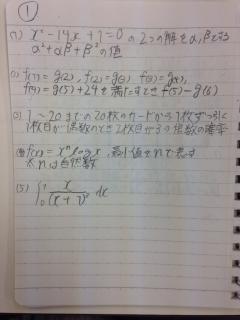 ①
(1) x²-14x+1=0 の2つの解をα,βとする
α²+αβ+β²の値
(2) f(1)=g(2), f(2)=g(3) f(3)=g(4),
f(4)=g(5)+24を満たすときf(5)-g(6)
(3) 1～20までの20枚のカードから1枚ずつ引く
1枚目が偶数のとき2枚目が3の倍数の確率
(4) f(x)=xⁿlogx, 最小値をnで表す
※nは自然数
(5) ∫₀¹ x/(x+1)² dx